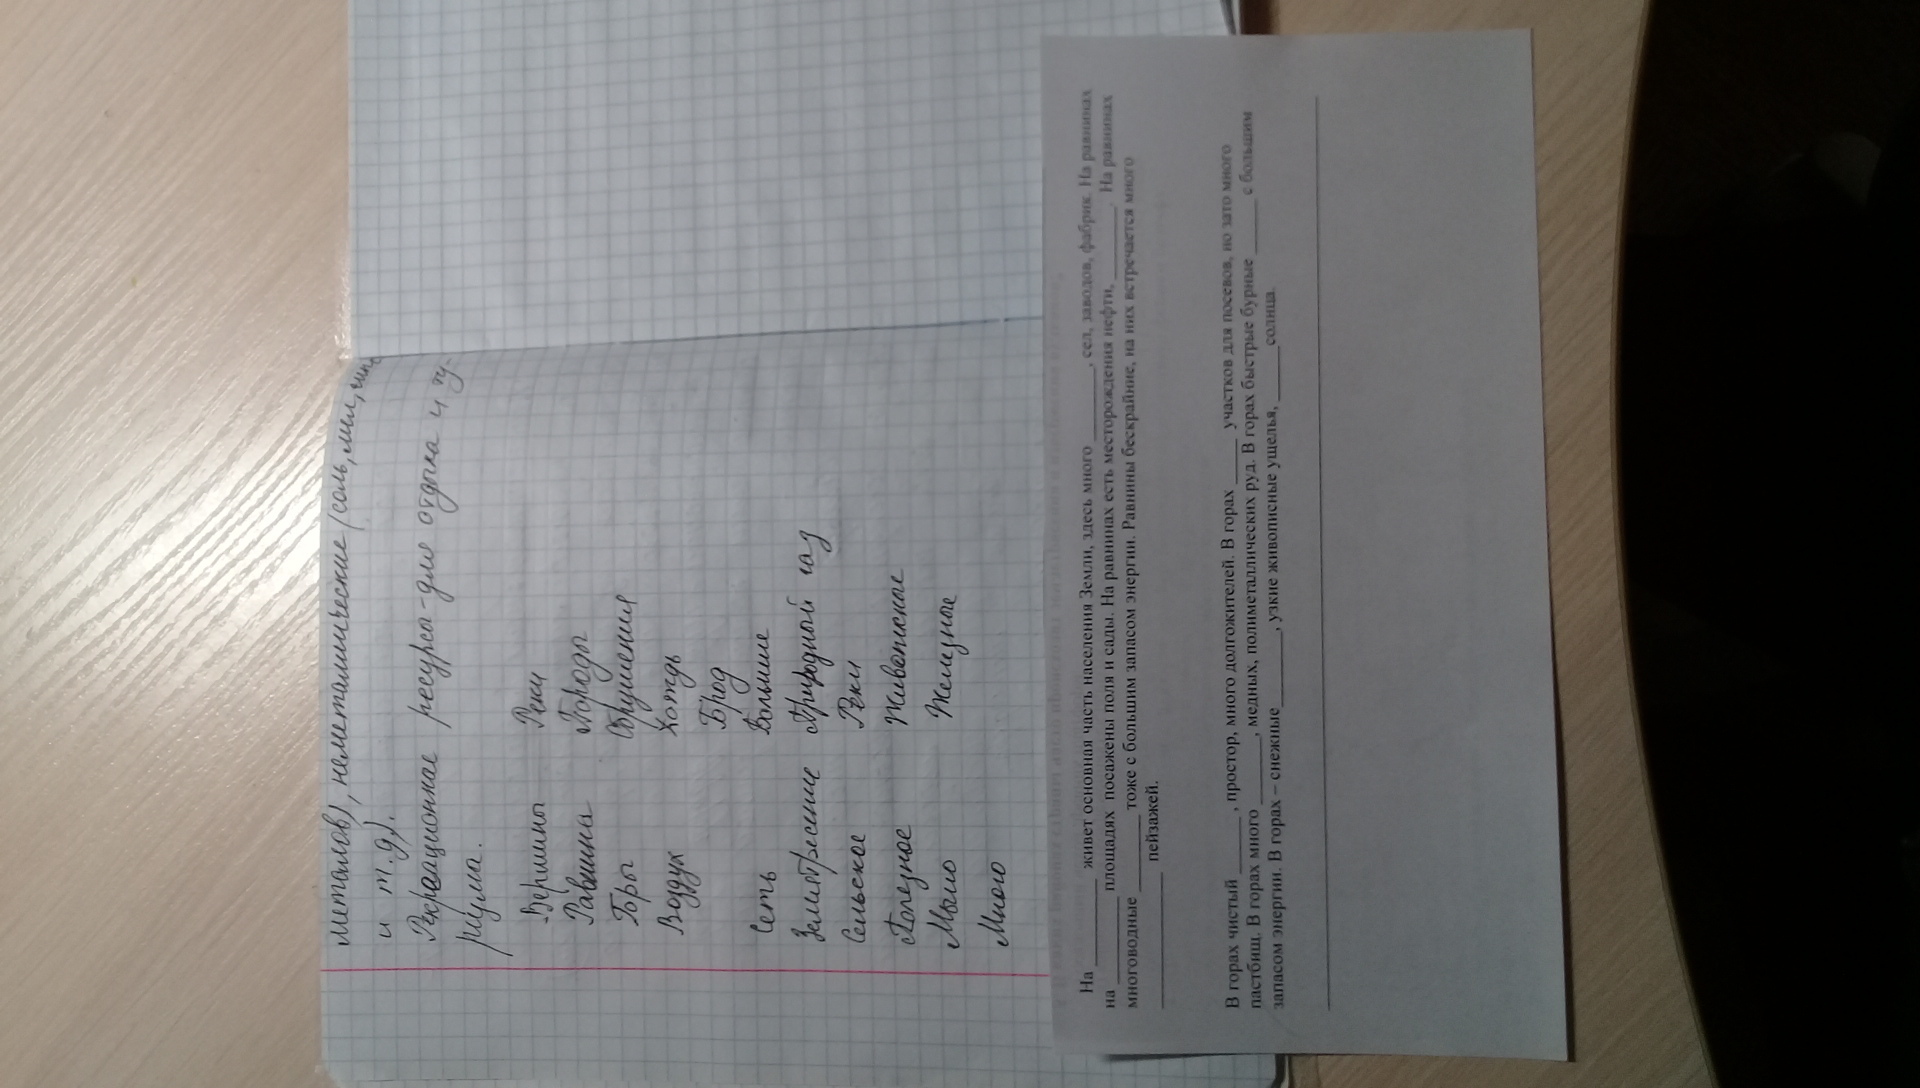 металлов), неметаллические (соль, мел,
и т.д).
Рекрационные ресурсы - для отдыха и ту-
ризма.
Вершины Реки
Равнина Породы
Горы Обрушения
Воздух Хотдь
Брод
Сеть Большие
Земетресение Природный газ
Сельское Реки
Полезное Живописное
Мало Железное
Много
На ________ живет основная часть населения Земли, здесь много ________, сел, заводов, фабрик. На равнинах
на ________ площадях посажены поля и сады. На равнинах есть месторождения нефти, ________. На равнинах
многоводные ________ тоже с большим запасом энергии. Равнины бескрайние, на них встречается много
________ пейзажей.
В горах чистый ________, простор, много долгожителей. В горах ________ участков для посевов, но зато много
пастбищ. В горах много ________, медных, полиметаллических руд. В горах быстрые бурные ________ с большим
запасом энергии. В горах – снежные________, узкие живописные ущелья, ________солнца.